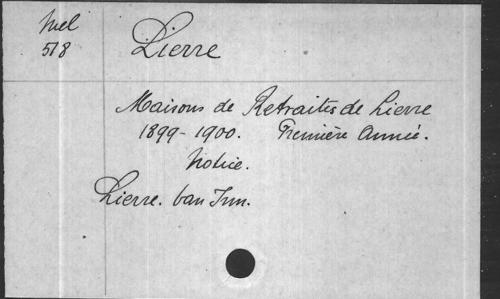 Mel
518
Lierre
Maisons de Retraites de Lierre
1899-1900. Première Année.
Notice.
Lierre. Van Inn.